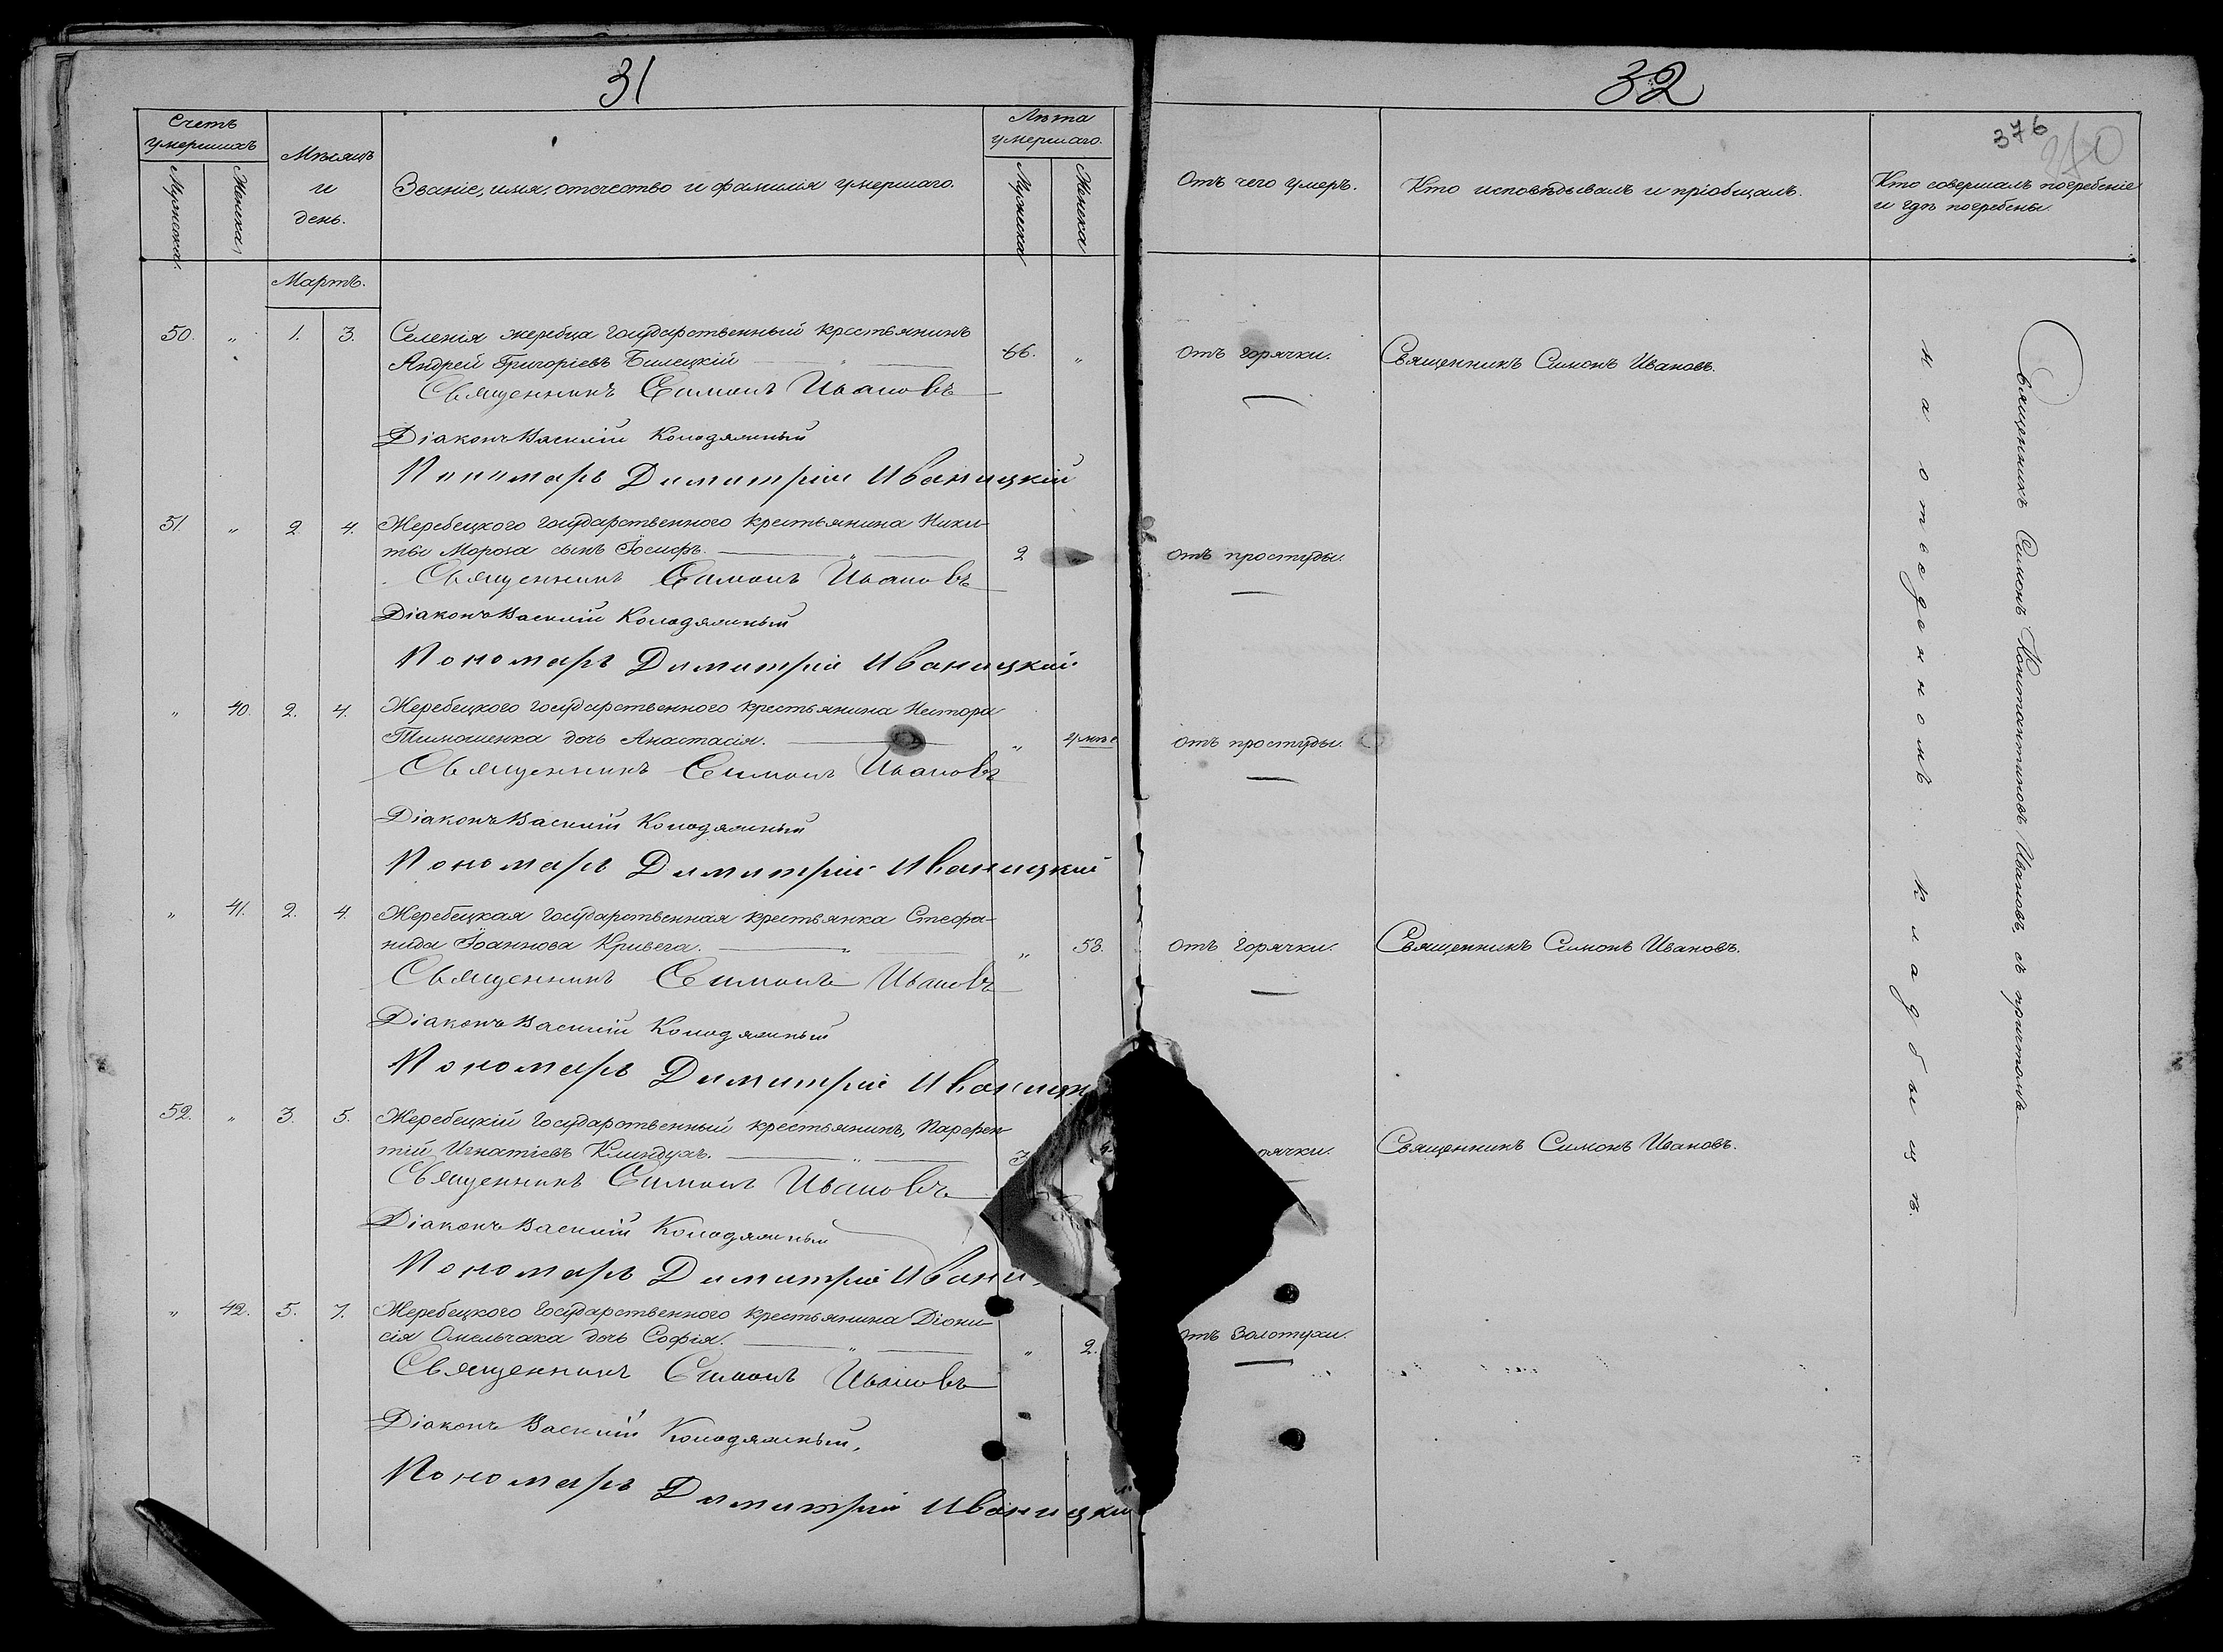 31
Счетъ
умершихъ
Мужеска.
Женска
Мѣсяцъ
и
день.
Званіе, имя, отчество и фамилія умершаго.
Лѣта
умершаго.
Мужеска
Женска
Мартъ.
50. „ 1. 3. Селенія жеребца государственный крестьянинъ
Андрей Григоріевъ Билецкій — „ — 66. „
Священникъ Симонъ Ивановъ
Діаконъ Василій Колодяжный
Пономарь Димитрій Иваницкій
51. „ 2 4. Жеребецкого государственного крестьянина Ники-
ты Мороза сынъ Іосифъ. — „ — 2
Священникъ Симонъ Ивановъ
Діаконъ Василій Колодяжный
Пономарь Димитрій Иваницкій
„ 40. 2. 4. Жеребецкого государственного крестьянина Нестора
Тимошенка дочь Анастасія. — „
Священникъ Симонъ Ивановъ
Діаконъ Василій Колодяжный
Пономарь Димитрій Иваницкій
„ 41. 2. 4. Жеребецкая государственная крестьянка Стефа-
нида Іоаннова Кривега. — „ — „ 58.
Священникъ Симонъ Ивановъ
Діаконъ Василій Колодяжный
Пономарь Димитрій Иваницк
52. „ 3. 5. Жеребецкій государственный крестьянинъ, Парфен-
тій Игнатіевъ Клиндухъ. — „ —
Священникъ Симонъ Ивановъ
Діаконъ Василій Колодяжный
Пономарь Димитрій Ивани
„ 42. 5. 7. Жеребецкого государственного крестьянина Діони-
сія Омельчака дочь Софія. — „ — „ 2.
Священникъ Симонъ Ивановъ
Діаконъ Василій Колодяжный,
Пономарь Димитрій Иваницкій
32
376
Отъ чего умеръ.
Кто исповѣдывалъ и пріобщалъ.
Кто совершалъ погребеніе
и гдѣ погребены.
Отъ горячки. Священникъ Симонъ Ивановъ.
Отъ простуды.
Отъ простуды.
Отъ горячки. Священникъ Симонъ Ивановъ.
рячки. Священникъ Симонъ Ивановъ.
отъ золотухи.
Священникъ Симонъ Константиновъ Ивановъ, съ причтомъ
на отведенномъ кладбыщѣ.